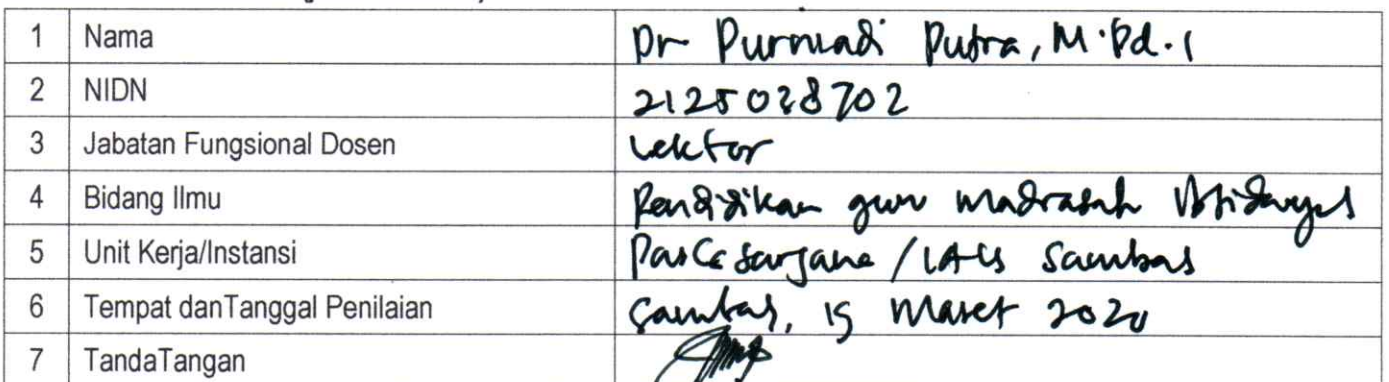 1 Nama Dr Purniadi Putra, M.Pd.I
2 NIDN 2125028702
3 Jabatan Fungsional Dosen Lektor
4 Bidang Ilmu Pendidikan guru Madrasah Ibtidaiyah
5 Unit Kerja/Instansi Pascasarjana / IAIS Sambas
6 Tempat danTanggal Penilaian Sambas, 15 Maret 2020
7 TandaTangan